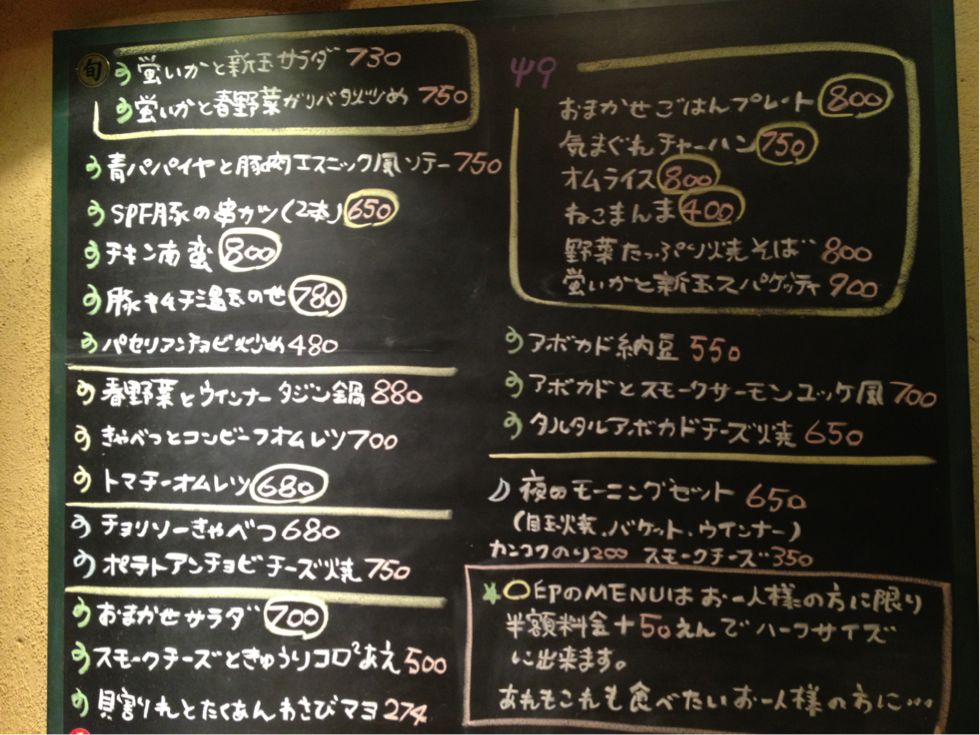 旬
蛍いかと新玉サラダ 730
蛍いかと春野菜ガリバタ炒め 750
青パパイヤと豚肉エスニック風ソテー 750
SPF豚の串カツ(2本) 650
チキン南蛮 800
豚キムチ温玉のせ 780
パセリアンチョビ炒め 480
春野菜とウインナータジン鍋 880
きゃべつとコンビーフオムレツ 700
トマチーオムレツ 680
チョリソーきゃべつ 680
ポテトアンチョビチーズ焼 750
おまかせサラダ 700
スモークチーズときゅうりコロ²あえ 500
貝割れとたくあんわさびマヨ 274
おまかせごはんプレート 800
気まぐれチャーハン 750
オムライス 800
ねこまんま 400
野菜たっぷり焼そば 800
蛍いかと新玉スパゲッティ 900
アボカド納豆 550
アボカドとスモークサーモンユッケ風 700
タルタルアボカドチーズ焼 650
夜のモーニングセット 650
(目玉焼、バケット、ウインナー)
カンコクのり 200 スモークチーズ 350
○印のMENUはお一人様の方に限り
半額料金+50えんでハーフサイズ
に出来ます。
あれもこれも食べたいお一人様の方に…